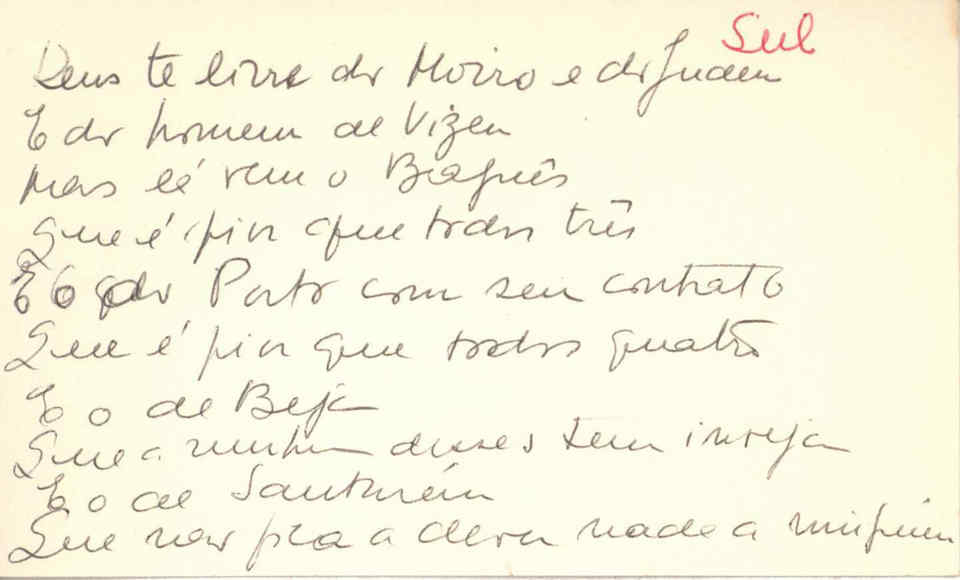 Sul
Deus te livre do Moiro e do Judeu
E do homem de Vizeu
Mas lá vem o Braguês
Que é pior que todos três
E o do Porto com seu contrato
Que é pior que todos quatro
E o de Beja
Que a nenhum desses tem inveja
E o de Santarém
Que não fica a dever nada a ninguém